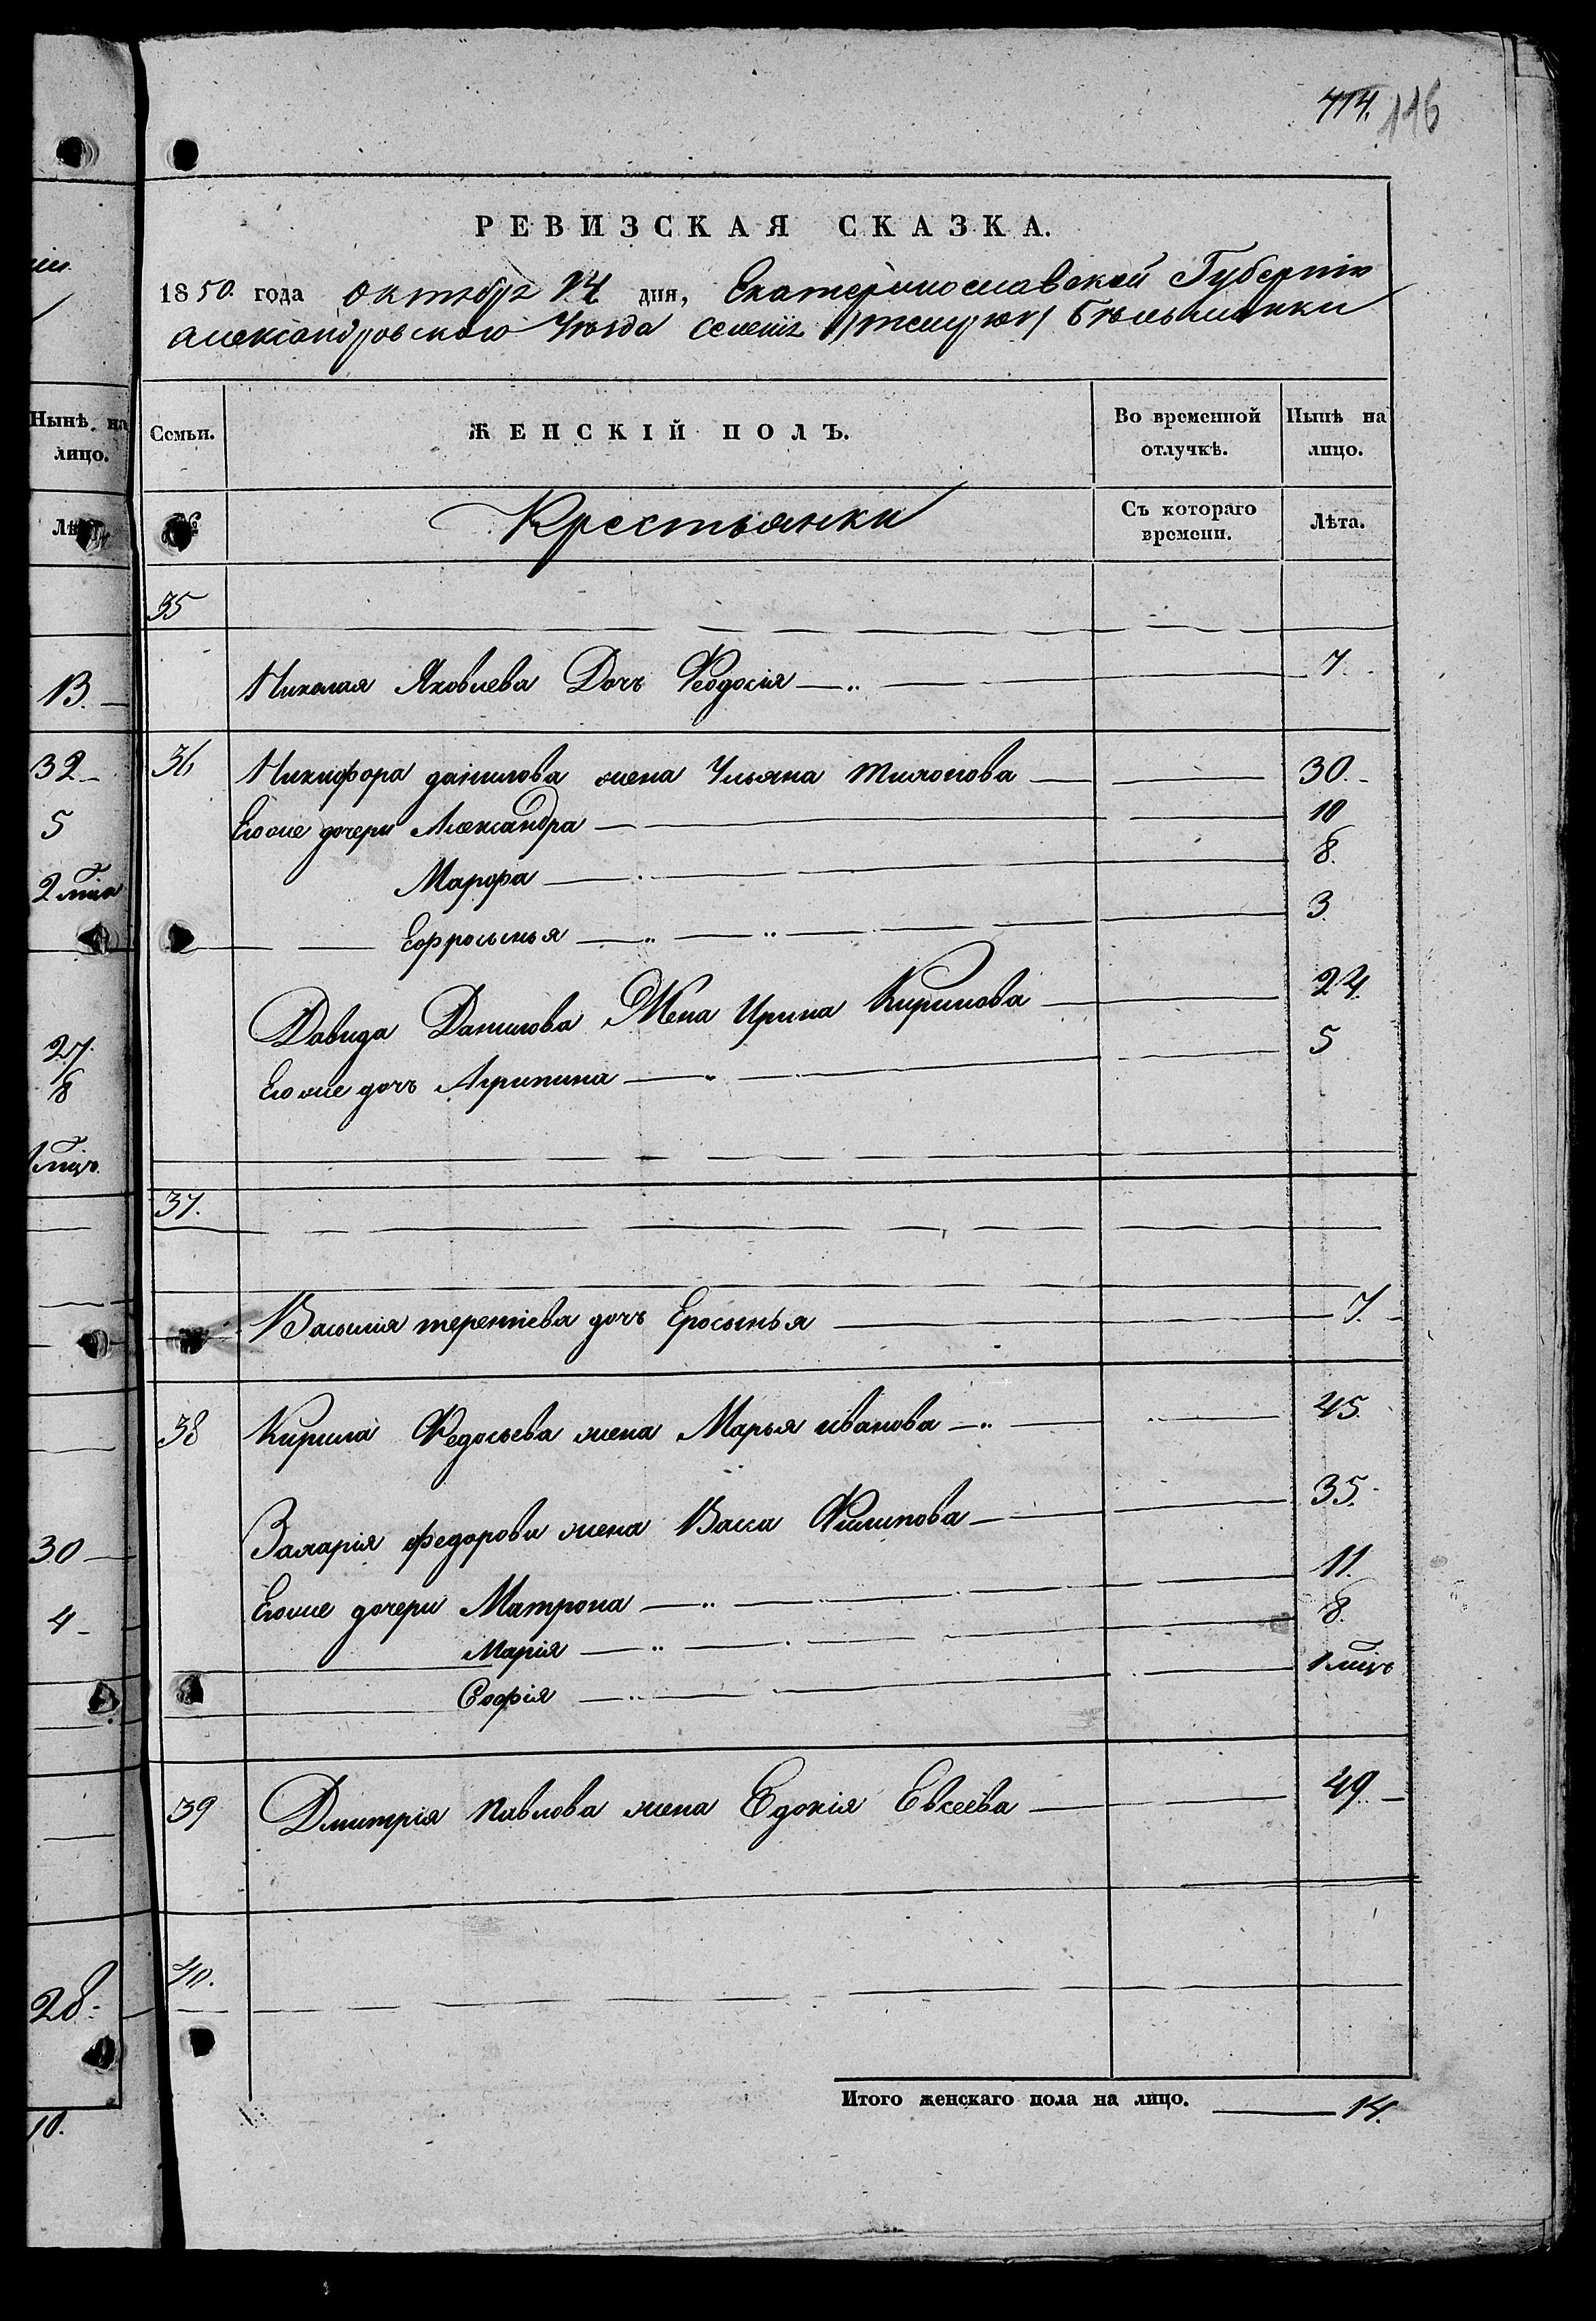 414. 116
РЕВИЗСКАЯ СКАЗКА.
1850. года октября 14 дня, Екатеринославской Губерніи
Александровского Уѣзда селенія Бѣльманки
Семьи. ЖЕНСКІЙ ПОЛЪ. Во временной отлучкѣ. Нынѣ на лицо.
№ Крестьянки Съ котораго времени. Лѣта.
35
Николая Яковлева Дочь Феодосія 7.
36 Никифора данилова жена Ульяна тихонова 30.
Егоже дочери Александра 10
Марфа 8.
Ефросынья 3
Давида Данилова Жена Ирина Кирилова 24.
Егоже дочь Агрипина 5
37.
Василія терентіева дочь Еросынья 7.
38 Кирила Федосьева жена Марья иванова 45.
Захарія федорова жена Васса Филипова 35.
Егоже дочери Матрона 11.
Марія 8.
Софія 1 мѣць
39 Дмитрія павлова жена Едокія Евсеева 49
40.
Итого женскаго пола на лицо. 14.
Нынѣ на
лицо.
Лѣта
13.
32
5
2 мѣса
27.
8
30
4
28.
10.